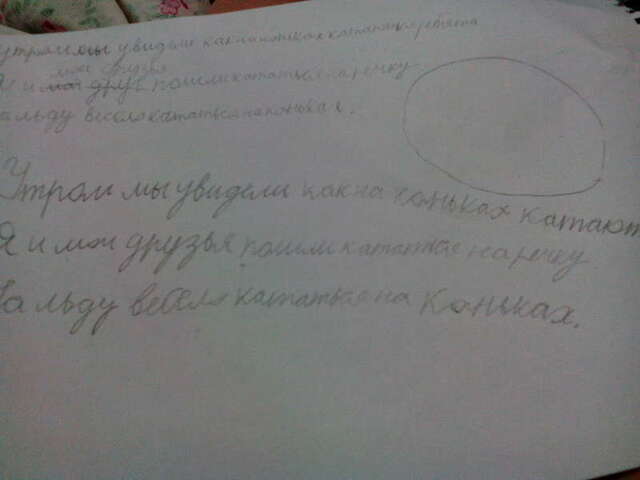 утром мы увидели как на коньках катаются ребята
Я и мои друзья пошли кататься на речку
на льду весело кататься на коньках.
Утром мы увидели как на коньках катают
Я и мои друзья пошли кататься на речку
На льду весело кататься на коньках.